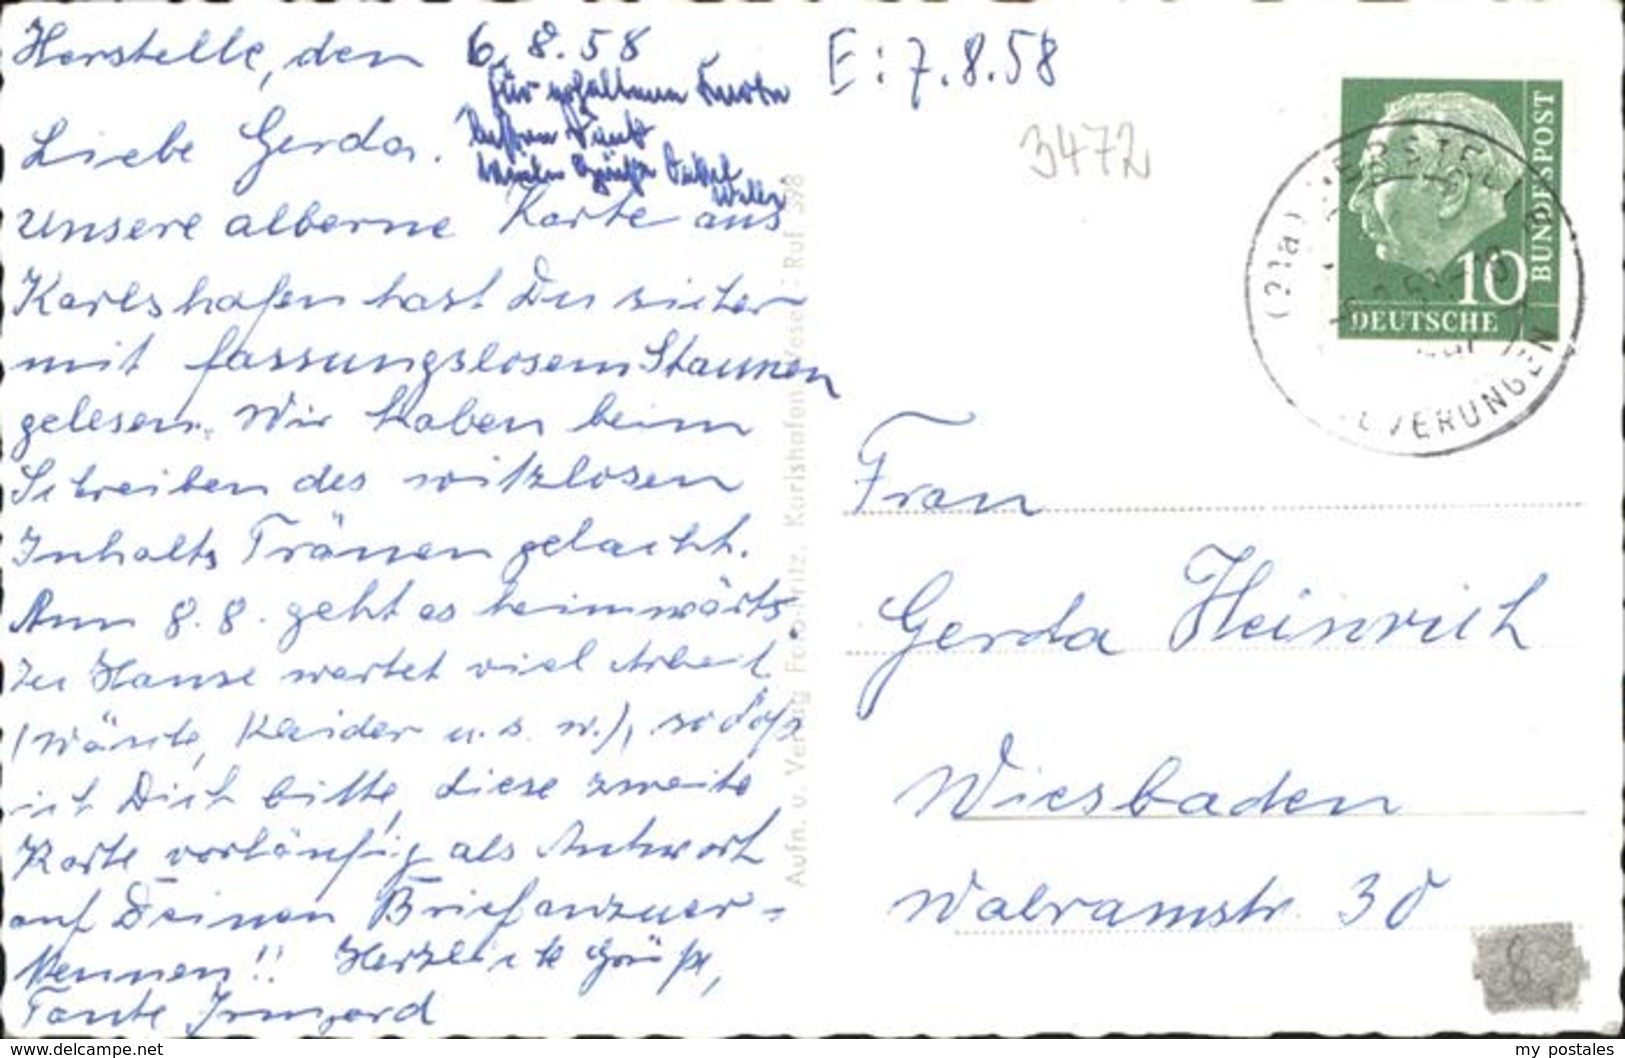 Herstelle, den 6.8.58
für erhaltene Karte
besten Dank
Liebe Gerda.
Unsere alberne Karte aus
Karlshafen hast Du sicher
mit fassungslosem Staunen
gelesen. Wir haben beim
Schreiben des witzlosen
Inhalts Tränen gelacht.
Am 8.8. geht es heimwärts
Zu Hause wartet viel Arbeit
(Wäsche, Kleider u.s.w.), so daß
ich Dich bitte, diese zweite
Karte vorläufig als Antwort
auf Deinen Brief anzuer-
kennen!! Herzliche Grüße,
Tante Irmgard
Aufn. u. Verlag Foto-Fritz, Karlshafen/Weser · Ruf 398
E: 7.8.58
3472
DEUTSCHE
BUNDESPOST
10
HERSTELLE
BEVERUNGEN
Frau
Gerda Heinrich
Wiesbaden
Walramstr. 30
8
delcampe.net
my postales